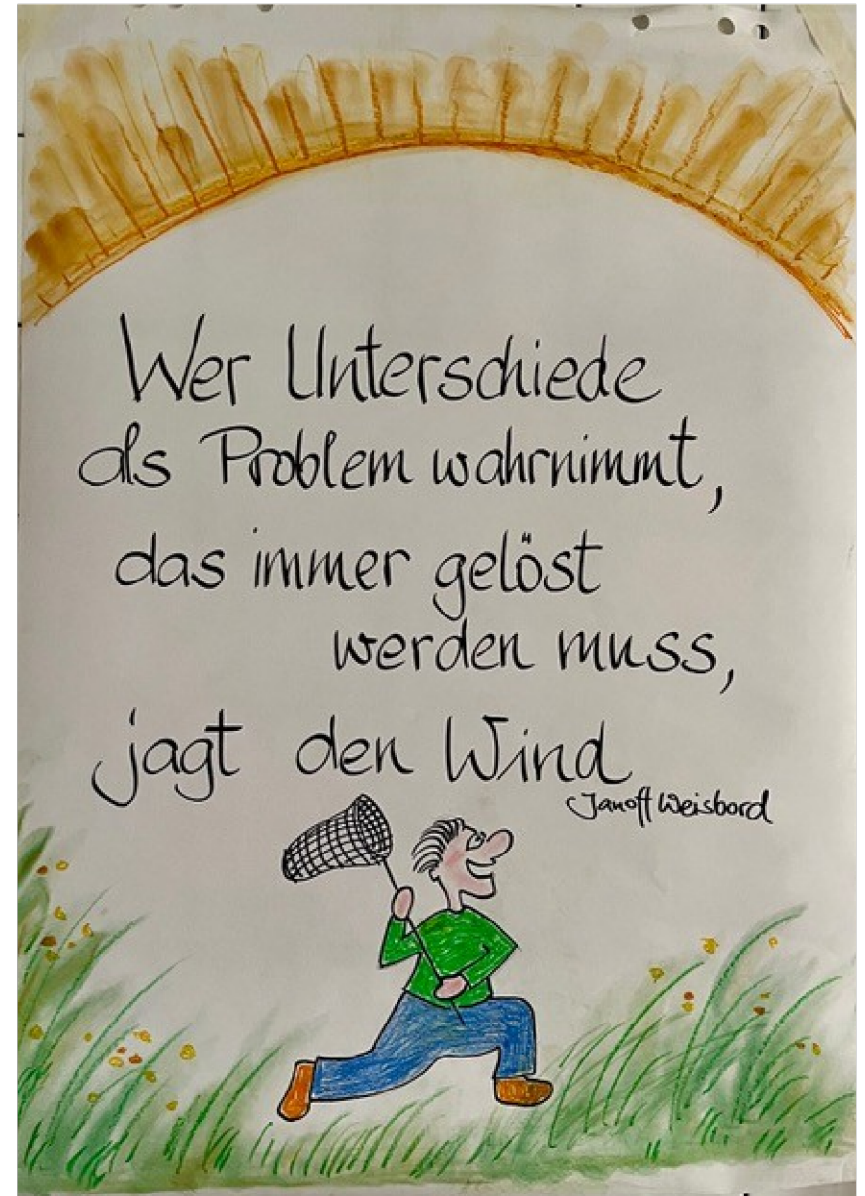 Wer Unterschiede
als Problem wahrnimmt,
das immer gelöst
werden muss,
jagt den Wind
Janoff Weisbord